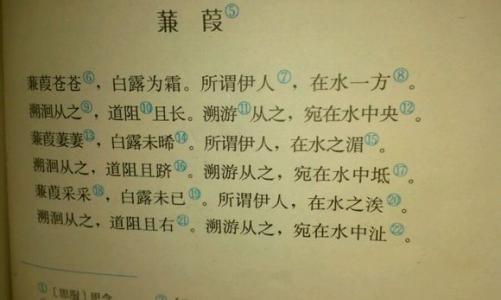 蒹葭⑤
蒹葭苍苍⑥，白露为霜。所谓伊人⑦，在水一方⑧。
溯洄从之⑨，道阻⑩且长。溯游⑪从之，宛在水中央⑫。
蒹葭萋萋⑬，白露未晞⑭。所谓伊人，在水之湄⑮。
溯洄从之，道阻且跻⑯。溯游从之，宛在水中坻⑰。
蒹葭采采⑱，白露未已⑲。所谓伊人，在水之涘⑳。
溯洄从之，道阻且右㉑。溯游从之，宛在水中沚㉒。